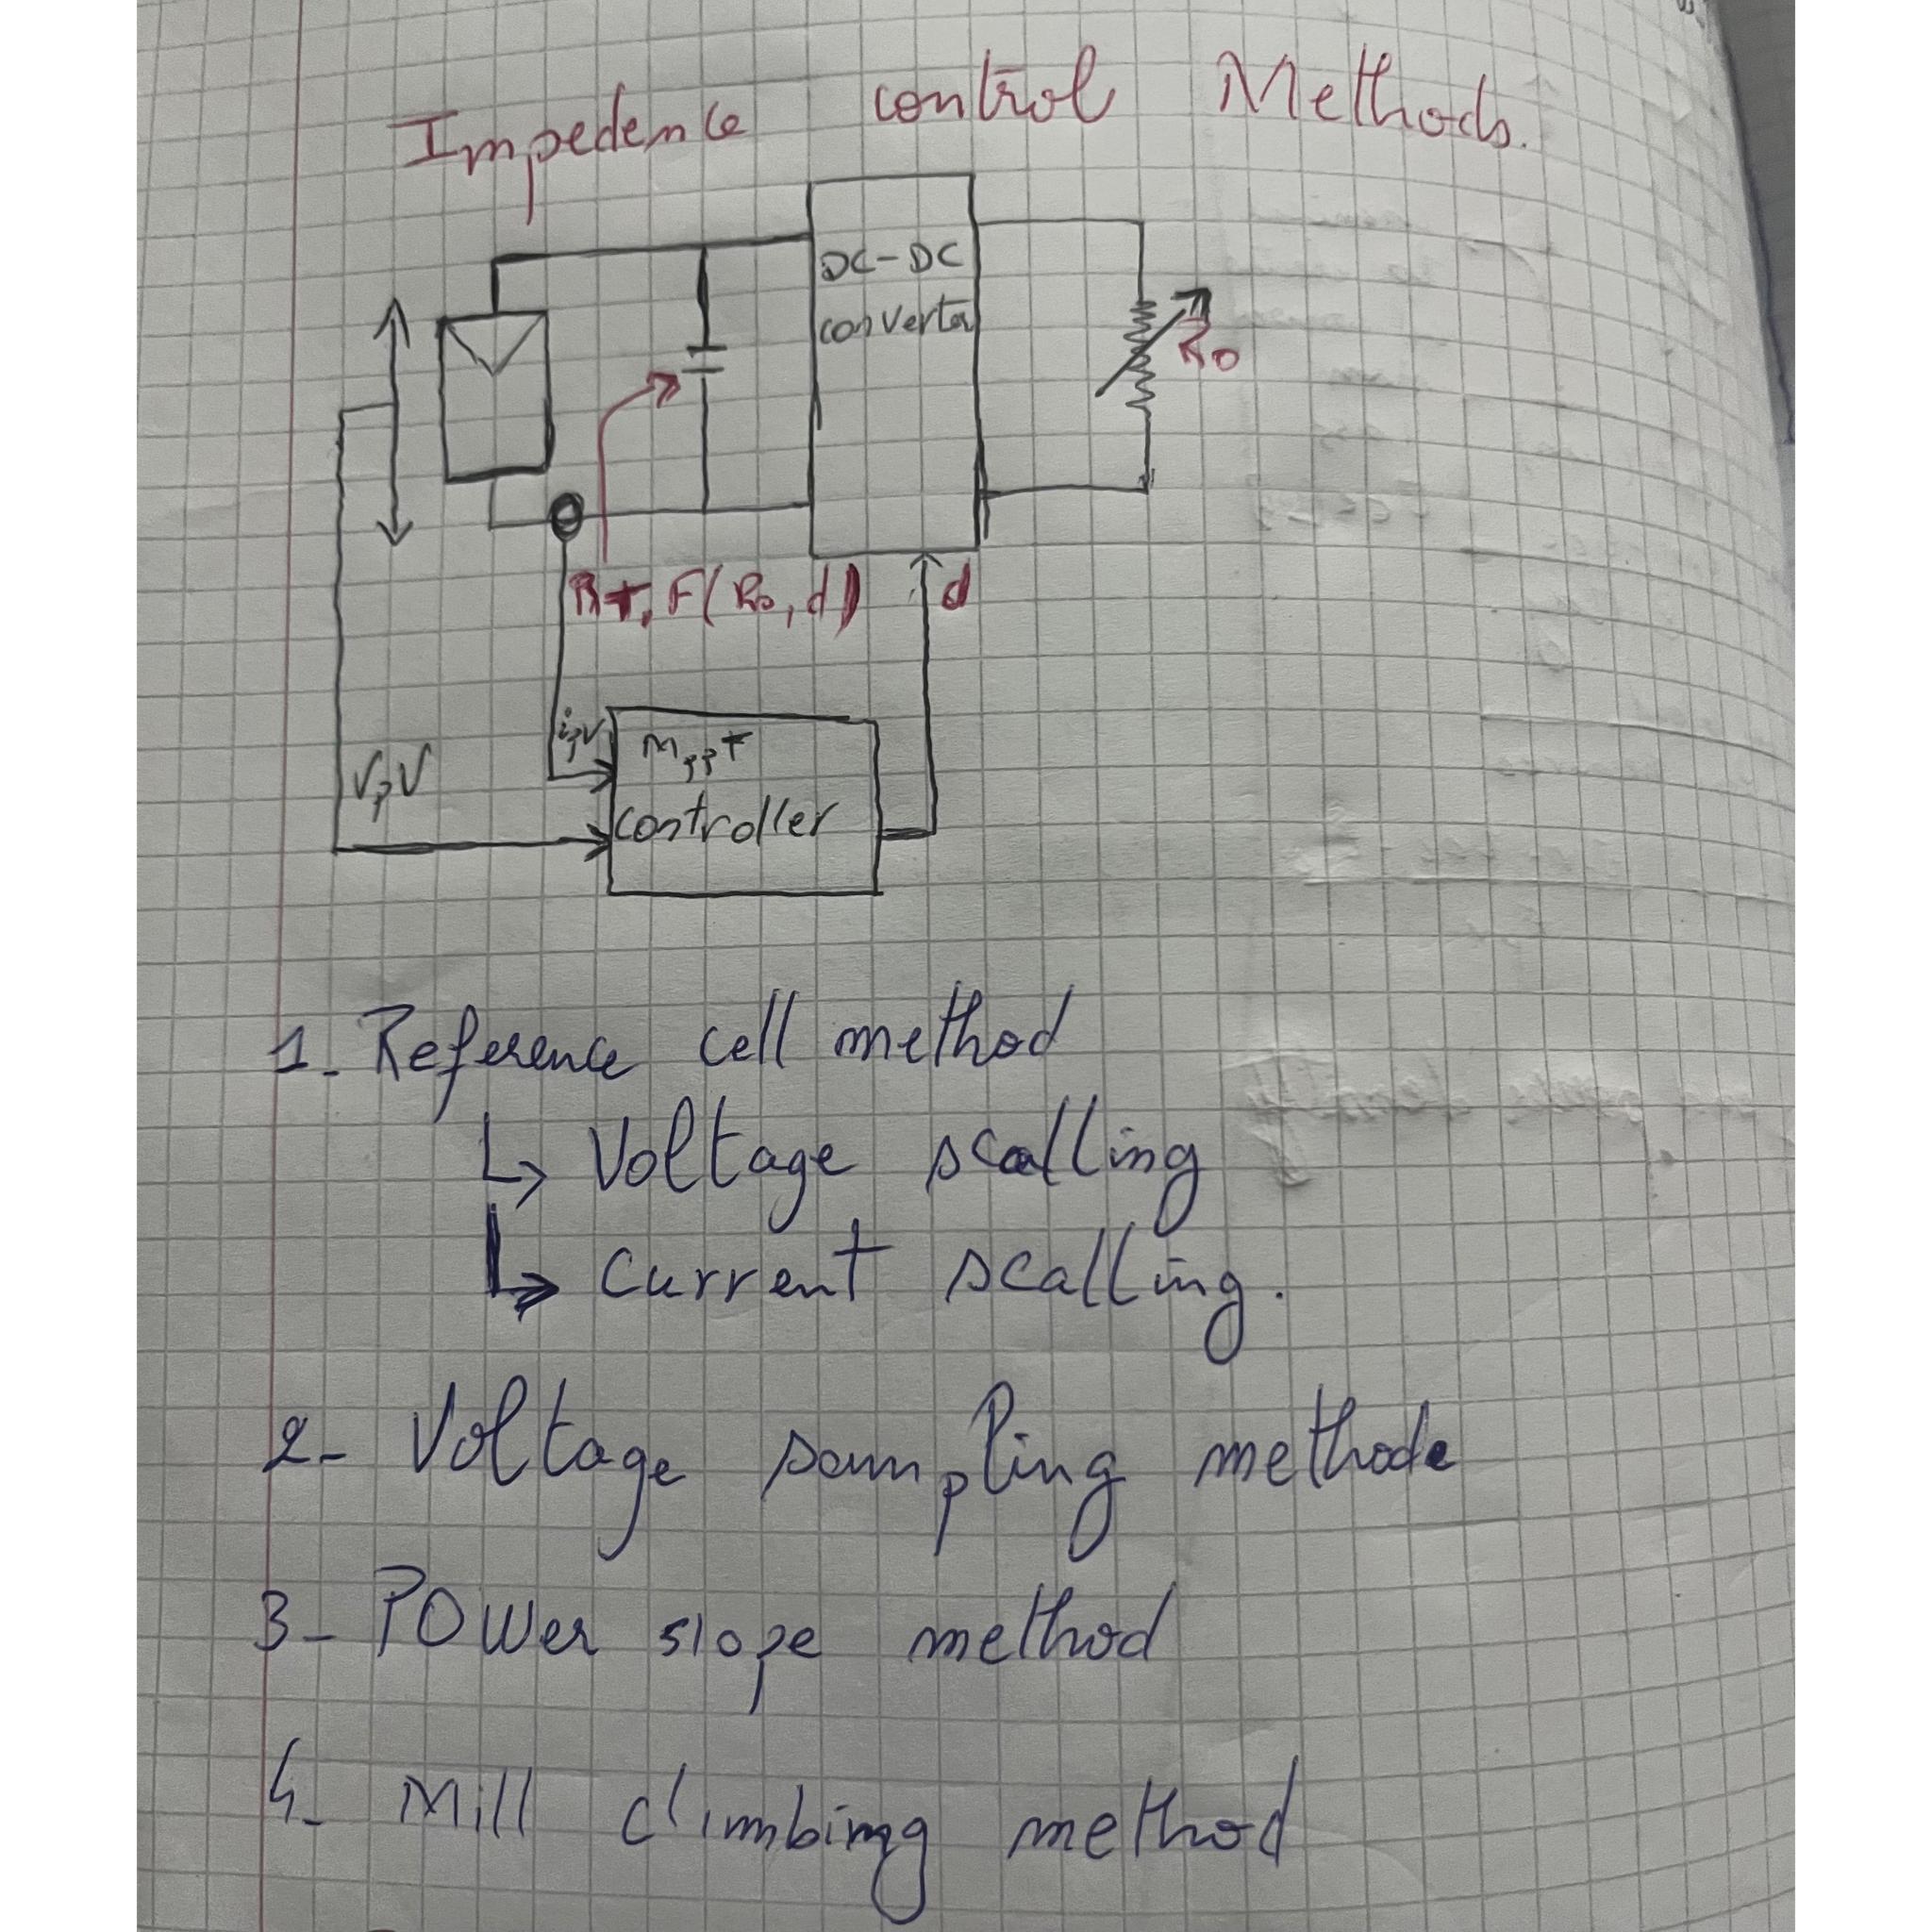 Impedence control Methods.
DC-DC
converter
Ro
F(Ro, d)
d
ipv
MPPT
VpV
controller
1- Reference cell method
↳ Voltage scalling
↳ current scalling.
2- Voltage sampling methode
3- POWer slope method
4- Mill climbimg method